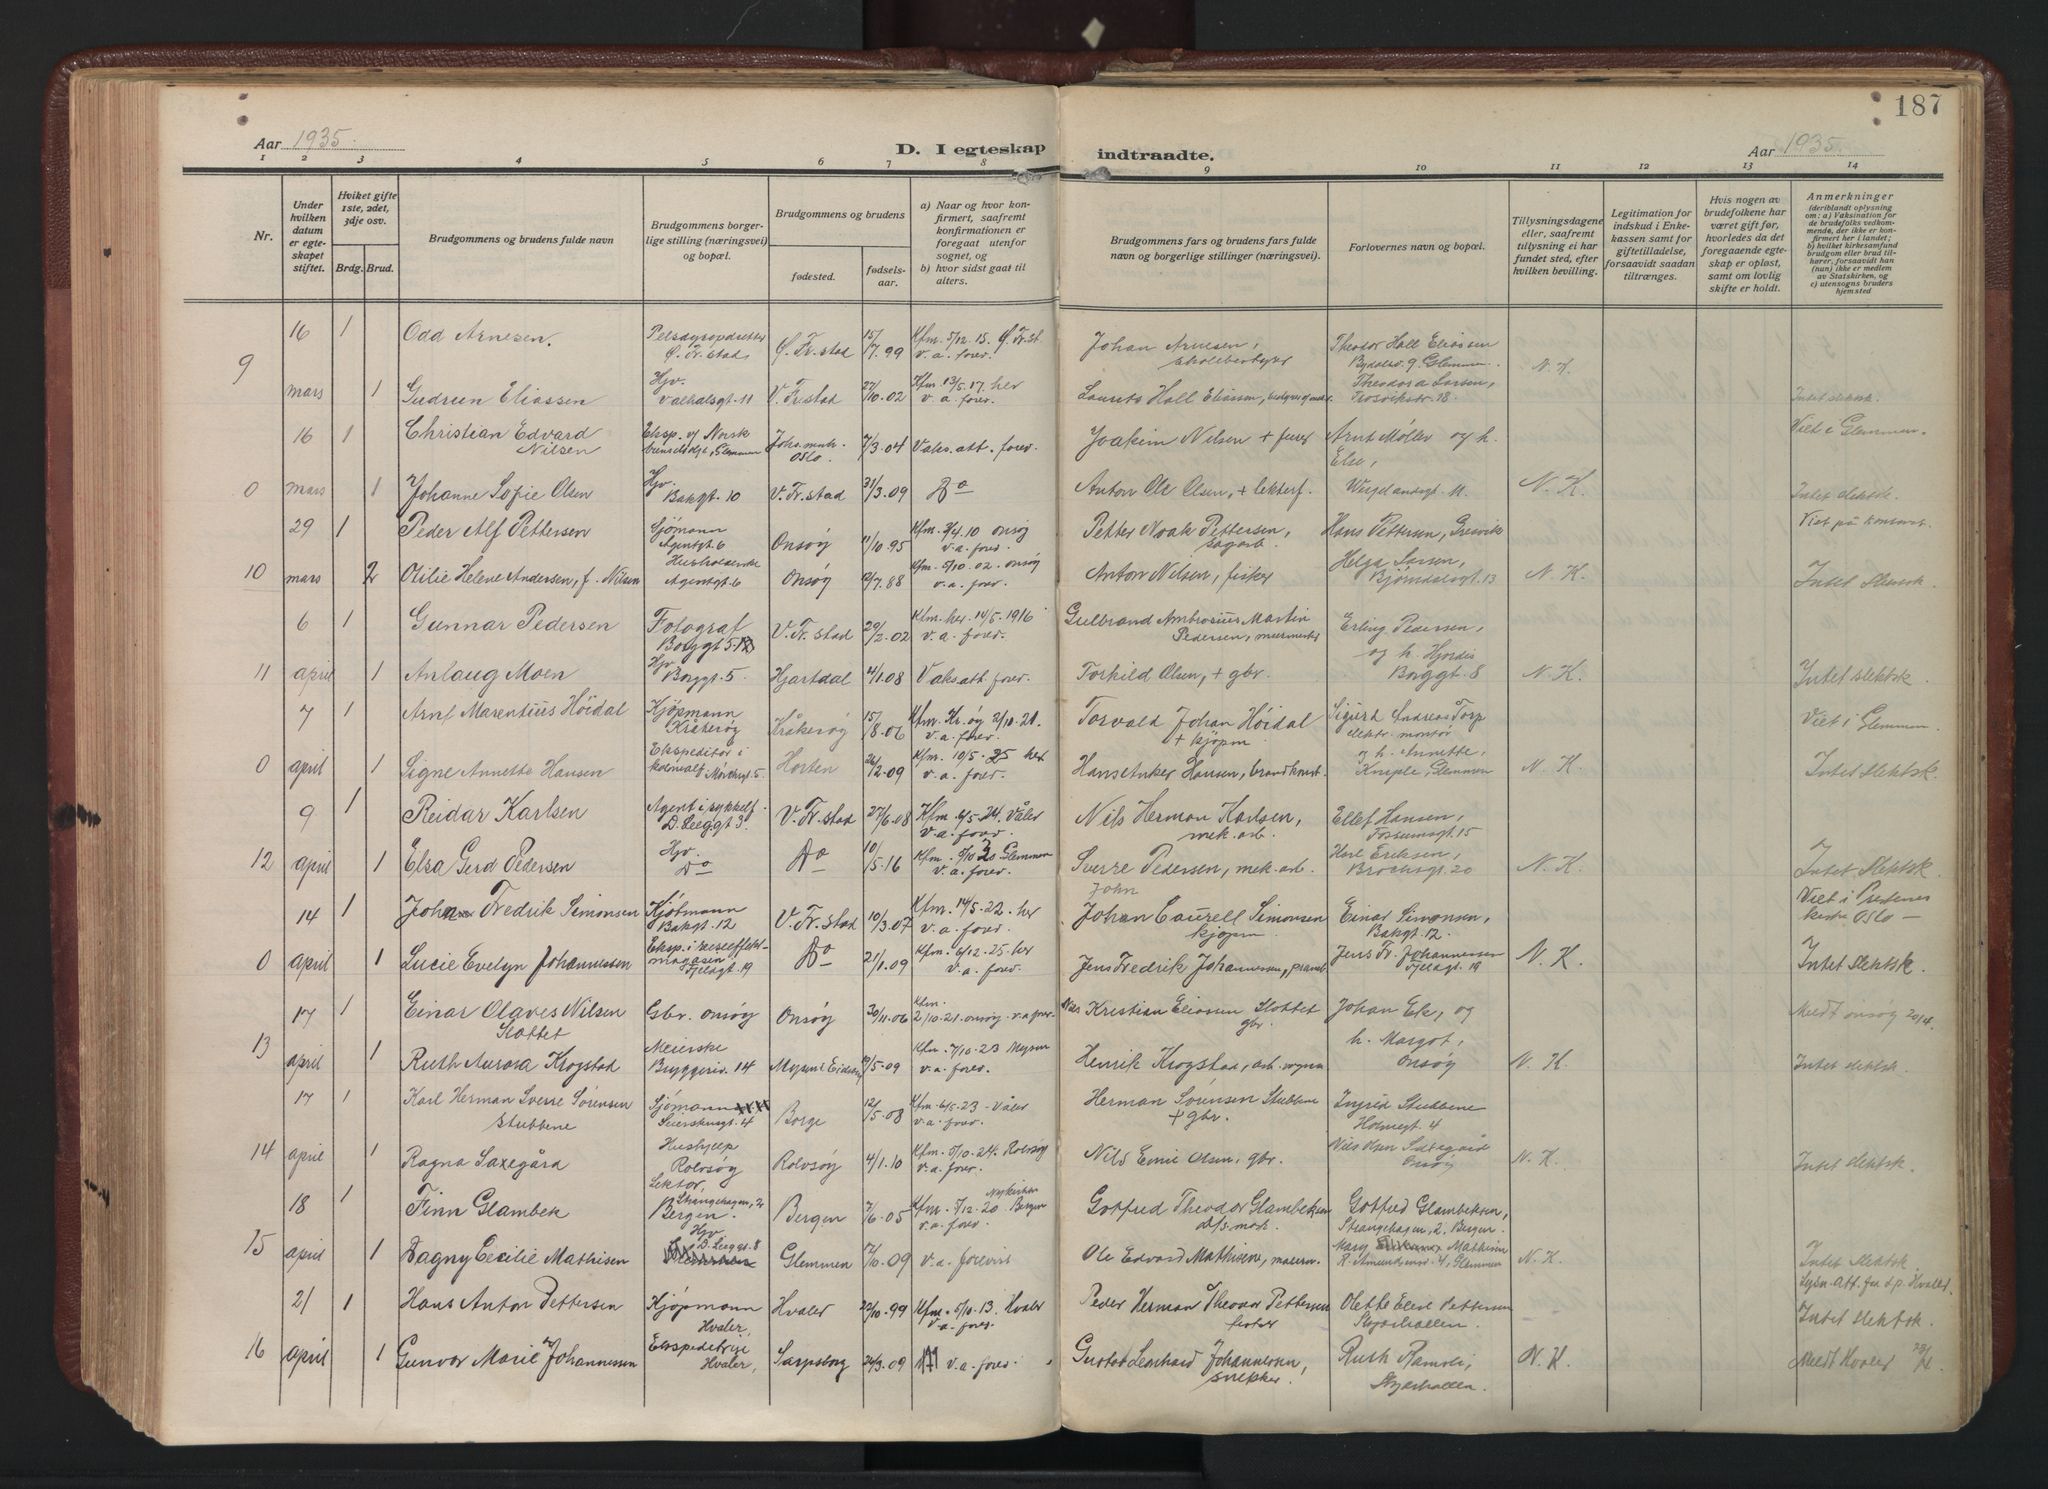 187
Aar 1935.
D. I egteskap indtraadte.
Aar 1935.
1 2 3 4 5 6 7 8 9 10 11 12 13 14
Nr.
Under hvilken datum er egteskapet stiftet.
Hviket gifte 1ste, 2det, 3dje osv.
Brdg. Brud.
Brudgommens og brudens fulde navn
Brudgommens borgerlige stilling (næringsvei) og bopæl.
Brudgommens og brudens
fødested.
fødselsaar.
a) Naar og hvor konfirmert, saafremt konfirmationen er foregaat utenfor sognet, og
b) hvor sidst gaat til alters.
Brudgommens fars og brudens fars fulde navn og borgerlige stillinger (næringsvei).
Forlovernes navn og bopæl.
Tillysningsdagene eller, saafremt tillysning ei har fundet sted, efter hvilken bevilling.
Legitimation for indskud i Enkekassen samt for giftetilladelse, forsaavidt saadan tiltrænges.
Hvis nogen av brudefolkene har været gift før, hvorledes da det foregaaende egteskap er opløst, samt om lovlig skifte er holdt.
Anmerkninger
(deriblandt oplysning om: a) Vaksination for de brudefolks vedkommende, der ikke er konfirmert her i landet; b) hvilket kirkesamfund brudgom eller brud tilhører, forsaavidt han (hun) ikke er medlem av Statskirken, og c) utensogns bruders hjemsted
16 1 Odd Arnesen. Ø. Fr.stad Ø. Fr.stad 15/7.99 Kfm. 5/12. 15. Ø. Fr.st. v. a. forev. Johan Arnesen, skolebestyrer Theodor Hall Eliassen Glemmen
9 mars 1 Gudrun Eliassen Hjv. Valhalsgt. 11 V. Fr.stad 27/10.02 Kfm. 13/5. 17. her v. a. forev. Laurits Hall Eliassen, Theodora Larsen, Trosvikstr. 18. N. K. Intet slektsk.
16 1 Christian Edvard Nilsen Eksp. v/ Norsk Glemmen Oslo 7/3.04 Vaks. att. forev. Joakim Nilsen + Arnt Möller og h. Else, Viet i Glemmen.
0 mars 1 Johanne Sofie Olsen Hjv. Bakgt. 10 V. Fr.stad 31/3.09 Do Anton Ole Olsen, + Wergelandsgt. 11. N. K. Intet slektsk.
29 1 Peder Alf Pettersen Sjømann Agentgt. 6 Onsøy 11/10.95 Kfm. 3/4.10 onsøy v. a. forev. Petter Noak Pettersen, sagarb. Hans Pettersen, Gresvik Viet på kontoret.
10 mars 2 Otilie Helene Andersen, f. Nilsen Husholderske Agentgt. 6 Onsøy 12/7.88 Kfm. 5/10. 02. onsøy v. a. forev. Anton Nilsen, fisker Helga Larsen, Bjørndalsgt. 13 N. K. Intet slektsk.
6 1 Gunnar Pedersen Fotograf V. Fr.stad 29/2.02 Kfm. her. 14/5. 1916 v. a. forev. Gulbrand Ambrosius Martin Pedersen, murmester Erling Pedersen, og h. Hjørdis
11 april 1 Anlaug Moen Hjv. Borggt. 5. Hjartdal 4/1.08 Vaks. att. forev. Torkild Olsen, + gbr. Borggt. 8 N. K. Intet slektsk.
7 1 Arnt Marentius Höidal Kjöpmann Kråkerøy Kråkerøy 15/8.06 Kfm. Kr.øy 2/10.21. v. a. forev. Torvald Johan Höidal + kjöpm. Sigurd Andreas Torp elektr. montör Viet i Glemmen
0 april 1 Signe Annette Hansen Ekspeditör i kolonialf. Horten 26/2.09 Kfm. 10/5. 25 her v. a. forev. Hans Anker Hansen, brandkonst. og h. Annette, Kniple, Glemmen N. K. Intet slektsk.
9 1 Reidar Karlsen Agent i sykkelf. D. Leeggt 3. V. Fr.stad 27/6.08 Kfm. 6/5. 24. Våler v. a. forev. Nils Herman Karlsen, mek. arb. Ellef Hansen, Fossumsgt. 15
12 april 1 Elsa Gerd Pedersen Hjv. Do Do 10/5.16 Kfm. 5/10 30 Glemmen v. a. forev. Sverre Pedersen, mek. arb. Karl Eriksen, Brochsgt. 20 N. K. Intet slektsk.
14 1 John Fredrik Simonsen Kjötmann Bakgt. 12 V. Fr.stad 10/3.07 Kfm. 14/5. 22. her v. a. forev. John Johan Laurell Simonsen kjöpm. Einar Simonsen, Bakgt. 12. Viet i Oslo –
0 april 1 Lucie Evelyn Johannessen Fjelagt. 19 Do 21/1.09 Kfm. 6/12. 25. her v. a. forev. Jens Fredrik Johannessen, Jens Fr. Johannessen Fjelagt. 19 N. K. Intet slektsk.
17 1 Einar Olaves Nilsen Slottet Gbr. onsøy Onsøy 30/11.06 Kfm. 2/10.21. onsøy. v. a. forev. Nils Kristian Eliassen Slottet gbr. Johan Ek, og Meldt onsøy 20/4.
13 april 1 Ruth Aurora Krogstad Meierske Bryggeriv. 14 Mysen i Eidsberg 5.09 Kfm. 7/10. 23 Mysen v. a. forev. Henrik Krogstad, arb. h. Margot, Onsøy N. K. Intet slektsk.
17 1 Karl Herman Sverre Sörensen Stubbene Sjömann Borge 12/5.08 Kfm. 6/5. 23 – Våler v. a. forev. Herman Sörensen Stubbene + gbr. Ingrid Stubbene Holmegt. 4
14 april 1 Ragna Saxegård Hushjelp Rolvsøy Rolvsøy 4/1.10 Kfm. 5/10. 24. Rolvsøy v. a. forev. Nils Emil Olsen, gbr. Nils Olsen Onsøy N. K. Intet slektsk.
18 1 Finn Glambek Lektor, Strangehagen, 2 Bergen. Bergen 7/6.05 Kfm. 5/12. 20 Nykirken Bergen v. a. forev. Gotfred Theodor Glambeksen Gotfred Glambeksen, Strangehagen, 2. Bergen.
15 april 1 Dagny Cecilie Mathisen Hjv D. Leeggt. 8 Glemmen 10.09 v. a. forevist Ole Edvard Mathisen, Mary Mathisen R. Amundsensv. 4, Glemmen N. K. Intet slektsk.
21 1 Hans Anton Pettersen Kjöpmann Hvaler, Hvaler 22/10.99 Kfm. 5/10. 13. Hvaler v. a. forev. Peder Herman Theodor Pettersen fisker Olette Elise Pettersen Skjærhallen. Lysn. att. fra s.p. Hvaler. Intet slektsk.
16 april 1 Gunvor Marie Johannessen Ekspeditrise Hvaler, Sarpsborg 26/3.09 v. a. forev. Gustav Leonhard Johannessen, snekker Ruth Ramsli, Skjærhallen. N. K. Meldt Hvaler